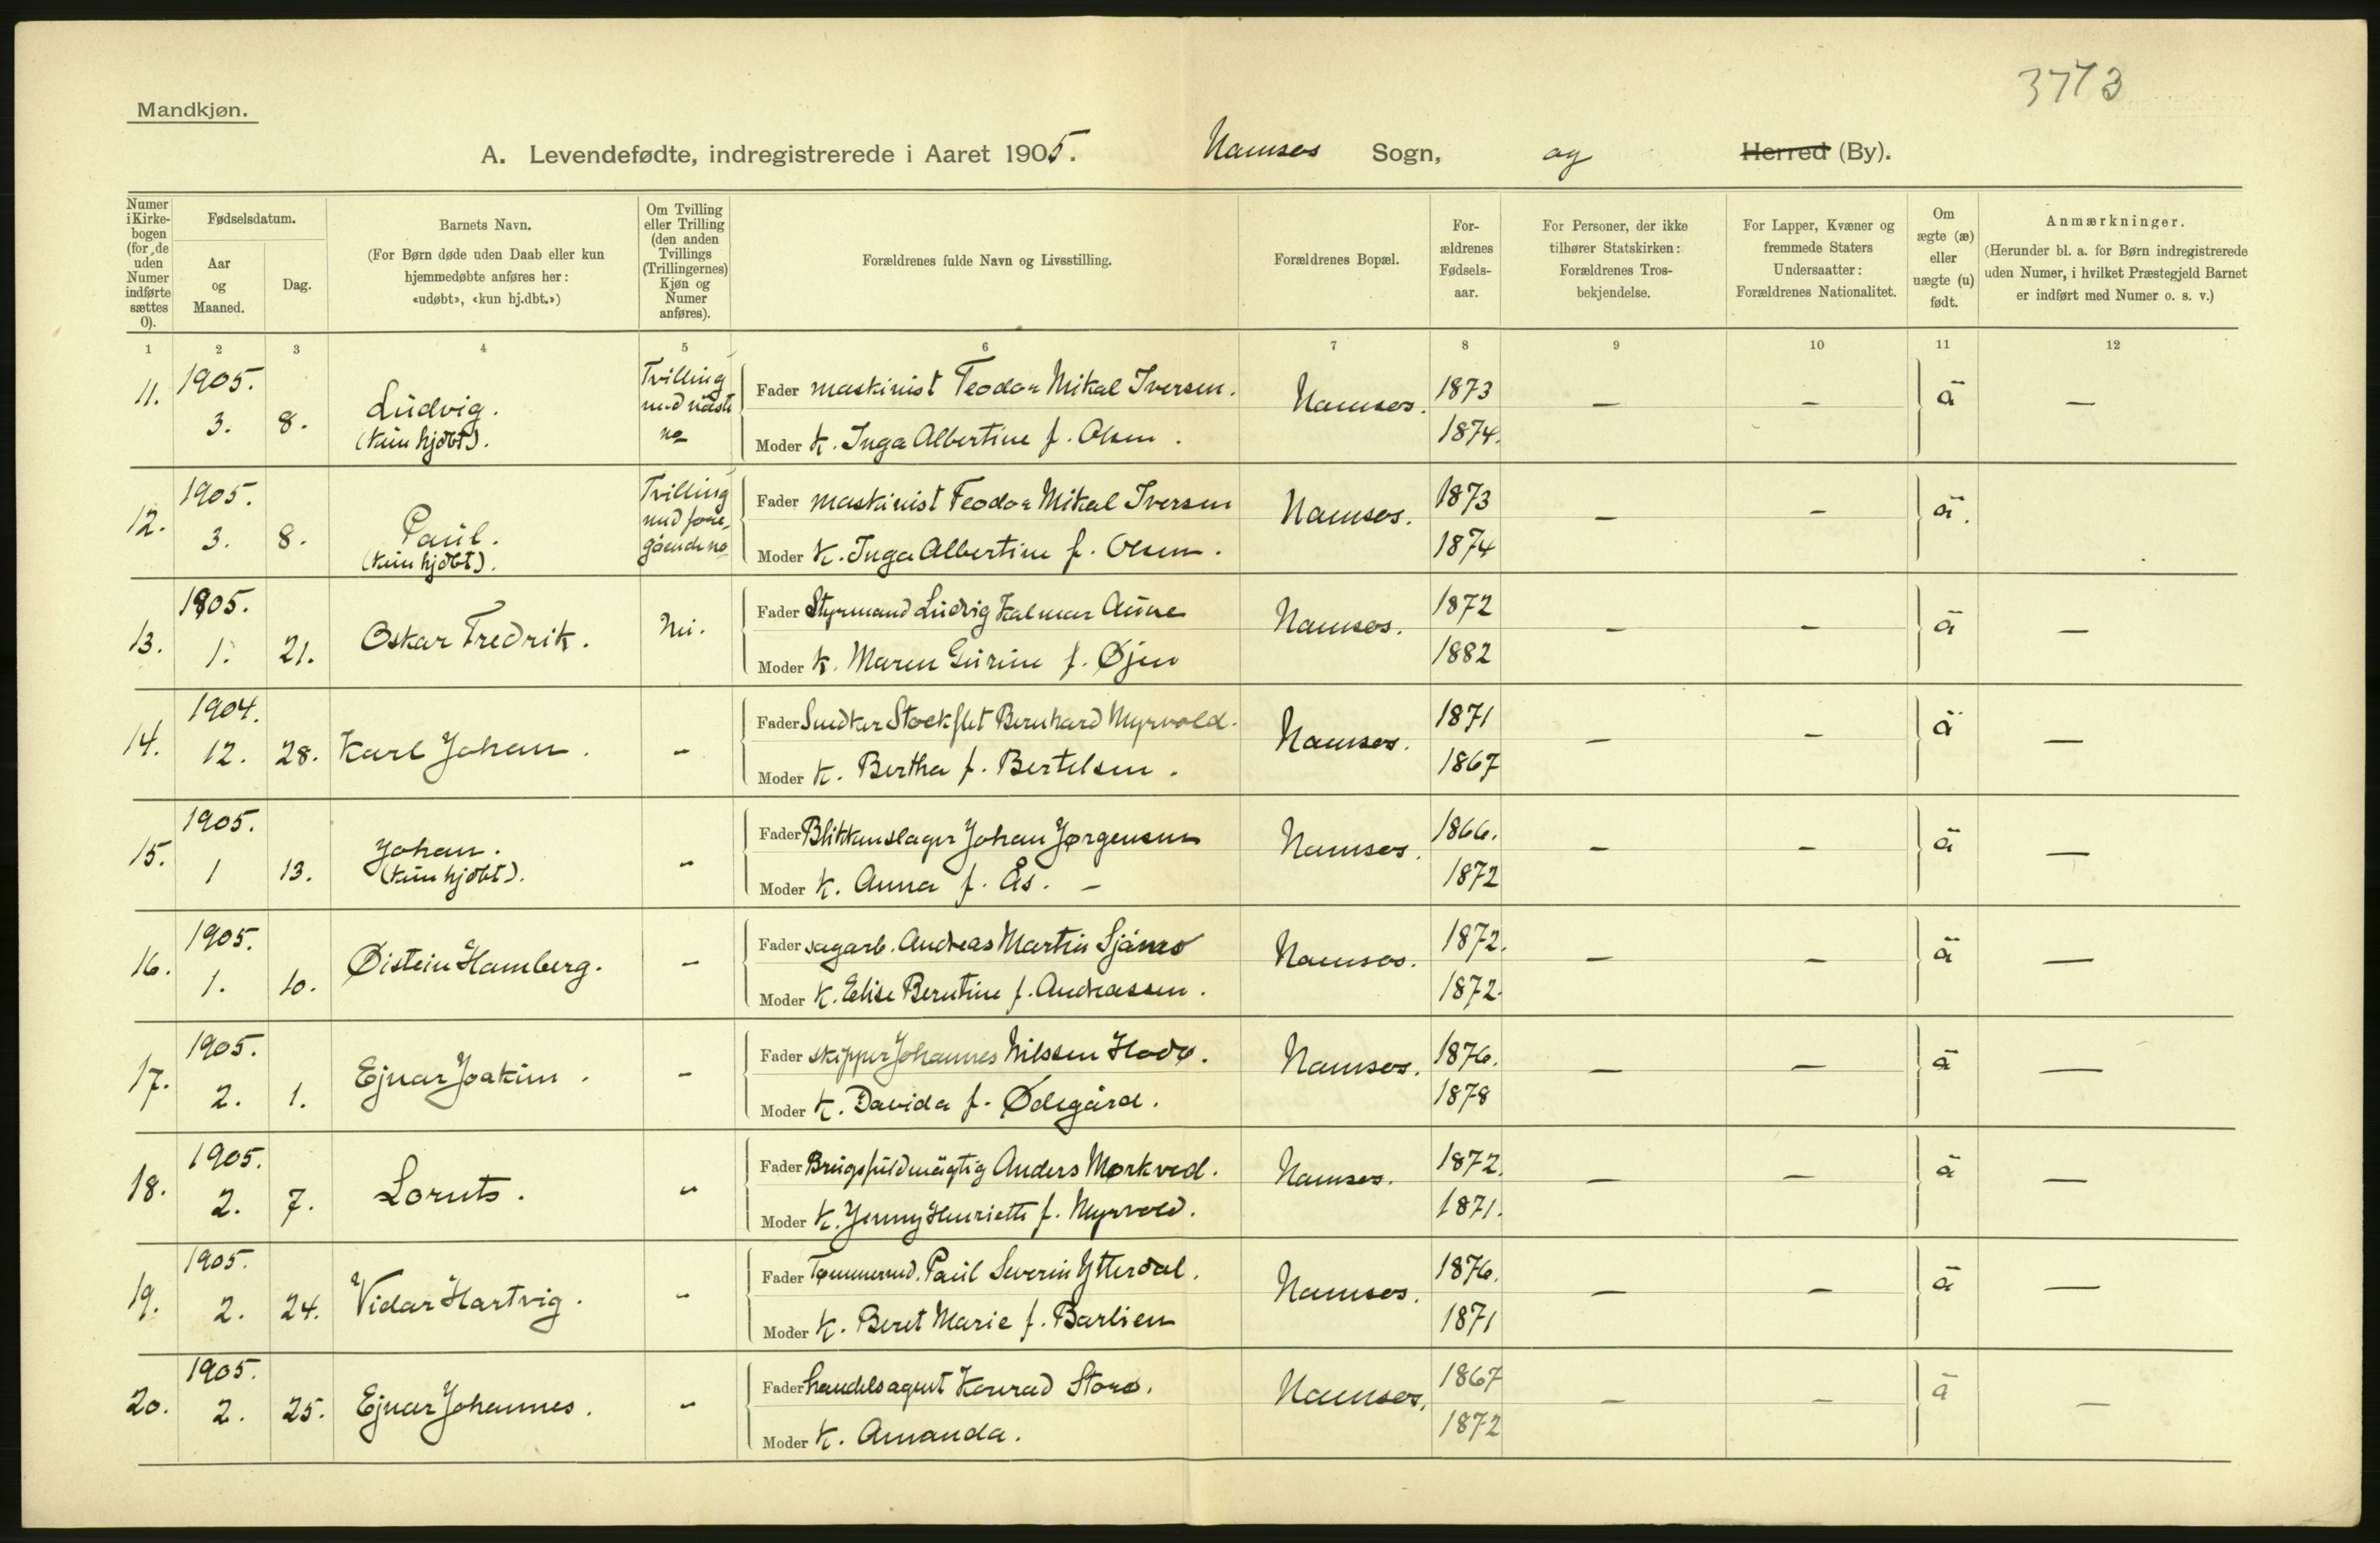 3773
Mandkjøn.
A. Levendefødte, indregistrerede i Aaret 1905. Namsos Sogn, og Herred (By).
Numer i Kirke-bogen (for de uden Numer indførte sættes 0).
Fødselsdatum.
Aar og Maaned.
Dag.
Barnets Navn.
(For Børn døde uden Daab eller kun hjemmedøbte anføres her: «udøbt», «kun hj.dbt.»)
Om Tvilling eller Trilling (den anden Tvillings (Trillingernes) Kjøn og Numer anføres).
Forældrenes fulde Navn og Livsstilling.
Forældrenes Bopæl.
For-ældrenes Fødsels-aar.
For Personer, der ikke tilhører Statskirken: Forældrenes Tros-bekjendelse.
For Lapper, Kvæner og fremmede Staters Undersaatter: Forældrenes Nationalitet.
Om ægte (æ) eller uægte (u) født.
Anmærkninger.
(Herunder bl. a. for Børn indregistrerede uden Numer, i hvilket Præstegjeld Barnet er indført med Numer o. s. v.)
1 2 3 4 5 6 7 8 9 10 11 12
11. 1905. 3. 8. Ludvig. (kun hjdbt). Tvilling med næste no
Fader maskinist Teodor Mikal Iversen. Namsos. 1873 — — ä —
Moder K. Inga Albertine f. Olsen. 1874.
12. 1905. 3. 8. Paul. (kun hjdbt). Tvilling med fore-gående no
Fader maskinist Teodor Mikal Iversen Namsos. 1873 — — ä.
Moder K. Inga Albertine f. Olsen. 1874
13. 1905. 1. 21. Oskar Fredrik. Nei.
Fader Styrmand Ludvig Halmar Aune Namsos. 1872 — — ä —
Moder K. Maren Gurine f. Øjen 1882
14. 1904. 12. 28. Karl Johan. –
Fader Snedker Stockflet Bernhard Myrvold. Namsos. 1871 — — ä —
Moder K. Bertha f. Bertelsen. 1867
15. 1905. 1 13. Johan. (kun hjdbt). –
Fader Blikkenslager Johan Jørgensen Namsos. 1866. — — ä —
Moder K. Anna f. Ås. – 1872
16. 1905. 1. 10. Øistein Hamberg. –
Fader sagarb. Andreas Martin Namsos. 1872. — — ä —
Moder K. Elise Berntine f. Andreassen. 1872.
17. 1905. 2. 1. Ejnar Joakim. –
Fader skipper Johannes Nilssen Hodø. Namsos. 1876. — — ä —
Moder K. Davida f. Ødegård. 1878
18. 1905. 2. 7. Lornts. –
Fader Brugsfuldmägtig Anders Mørkved. Namsos. 1872. — — ä —
Moder K. Jenny Henriette f. Myrvold. 1871.
19. 1905. 2. 24. Vidar Hartvig. –
Fader Tømmermd. Paul Severin Ytterdal. Namsos. 1876. — — ä —
Moder K. Beret Marie f. Barlien 1871
20. 1905. 2. 25. Ejnar Johannes. –
Fader handelsagent Konrad Storø. Namsos. 1867 — — ä —
Moder K. Amanda. 1872